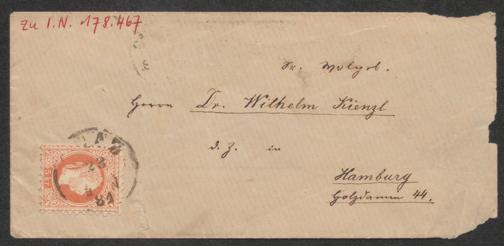 Zu I.N. 178.467
Sr. Wolgeb.
Herrn Dr. Wilhelm Kienzl
d. Z. in
Hamburg
Holzdamm 44.